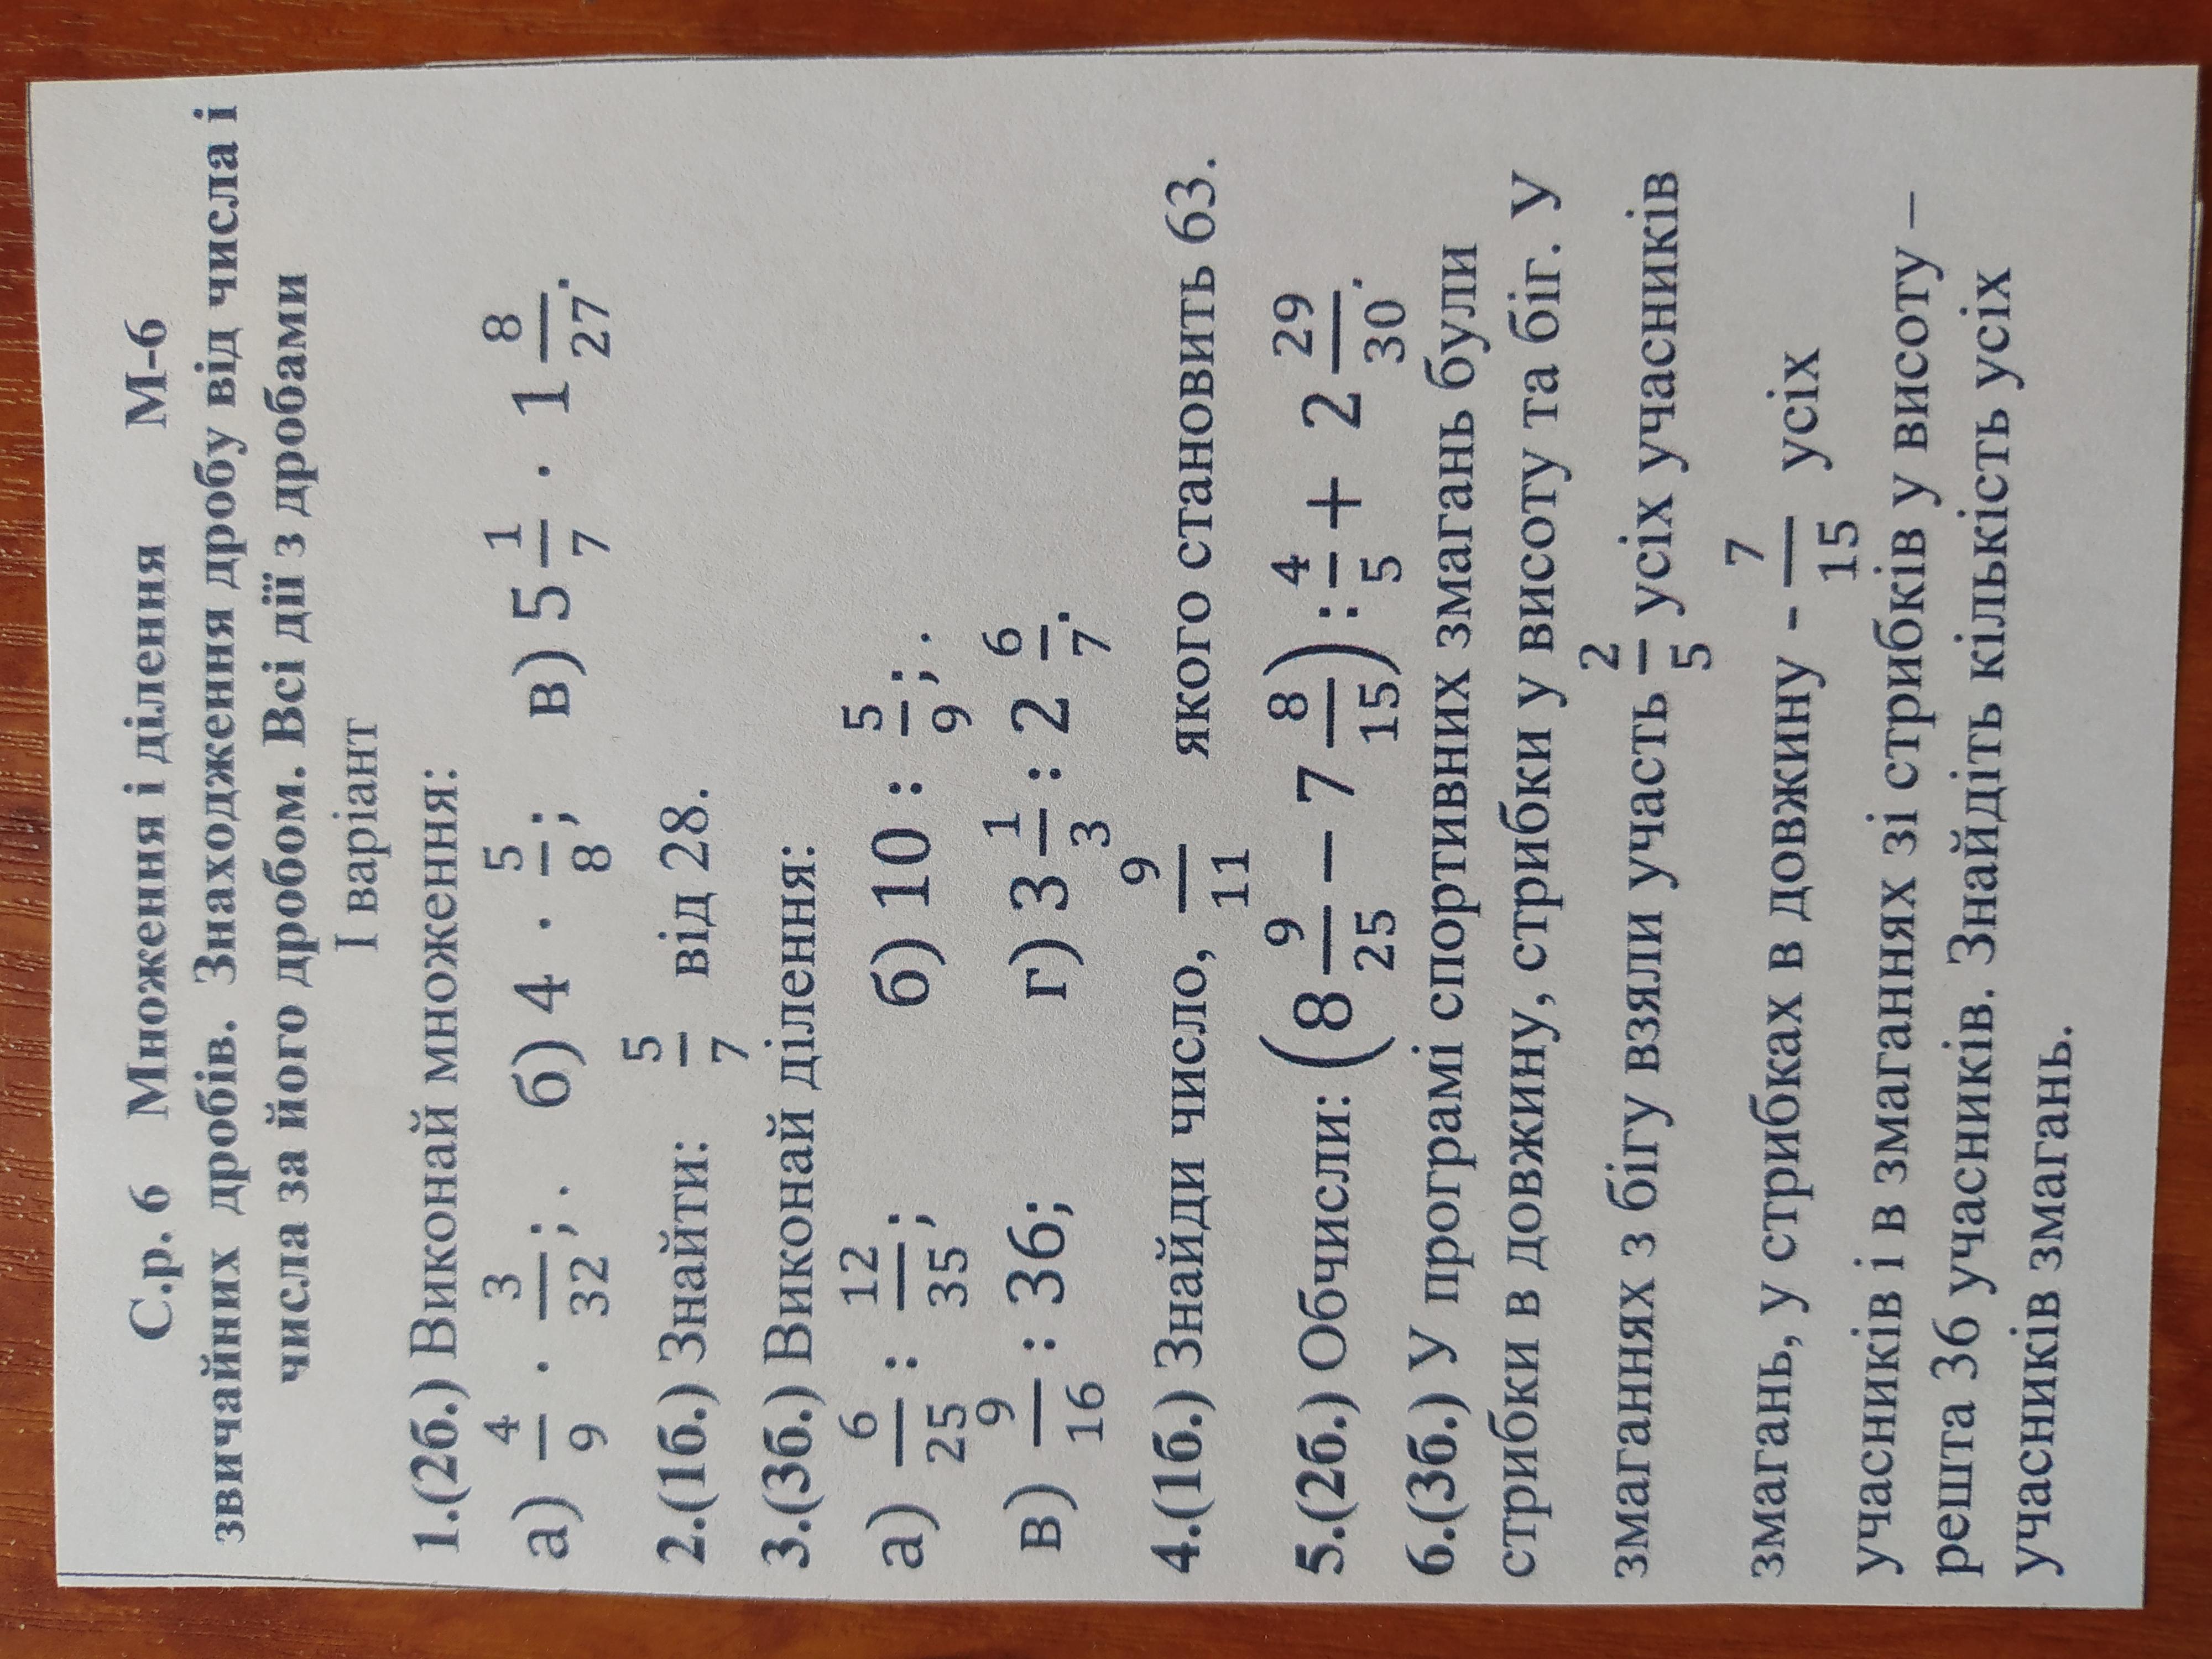 С.р. 6 Множення і ділення М-6
звичайних дробів. Знаходження дробу від числа і
числа за його дробом. Всі дії з дробами
І варіант
1.(2б.) Виконай множення:
а) 4/9 · 3/32; . б) 4 · 5/8; в) 5 1/7 · 1 8/27.
2.(1б.) Знайти: 5/7 від 28.
3.(3б.) Виконай ділення:
а) 6/25 : 12/35; б) 10 : 5/9; .
в) 9/16 : 36; г) 3 1/3 : 2 6/7.
4.(1б.) Знайди число, 9/11 якого становить 63.
5.(2б.) Обчисли: (8 9/25 − 7 8/15) : 4/5 + 2 29/30.
6.(3б.) У програмі спортивних змагань були
стрибки в довжину, стрибки у висоту та біг. У
змаганнях з бігу взяли участь 2/5 усіх учасників
змагань, у стрибках в довжину - 7/15 усіх
учасників і в змаганнях зі стрибків у висоту –
решта 36 учасників. Знайдіть кількість усіх
учасників змагань.